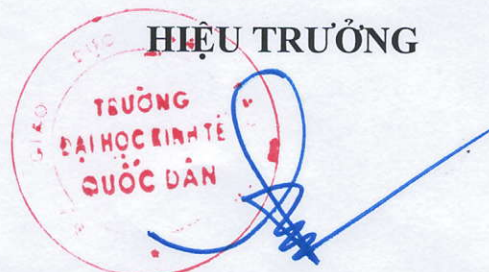 HIỆU TRƯỞNG
GIÁO DỤC
TRƯỜNG
ĐẠI HỌC KINH TẾ
QUỐC DÂN